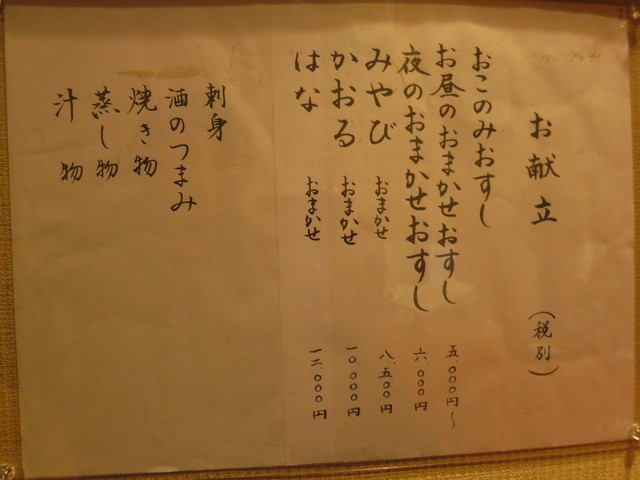 お献立 （税別）
おこのみおすし
お昼のおまかせおすし 五.〇〇〇円〜
夜のおまかせおすし 六.〇〇〇円
みやび おまかせ 八.五〇〇円
かおる おまかせ 一〇.〇〇〇円
はな おまかせ 一二.〇〇〇円
刺身
酒のつまみ
焼き物
蒸し物
汁物